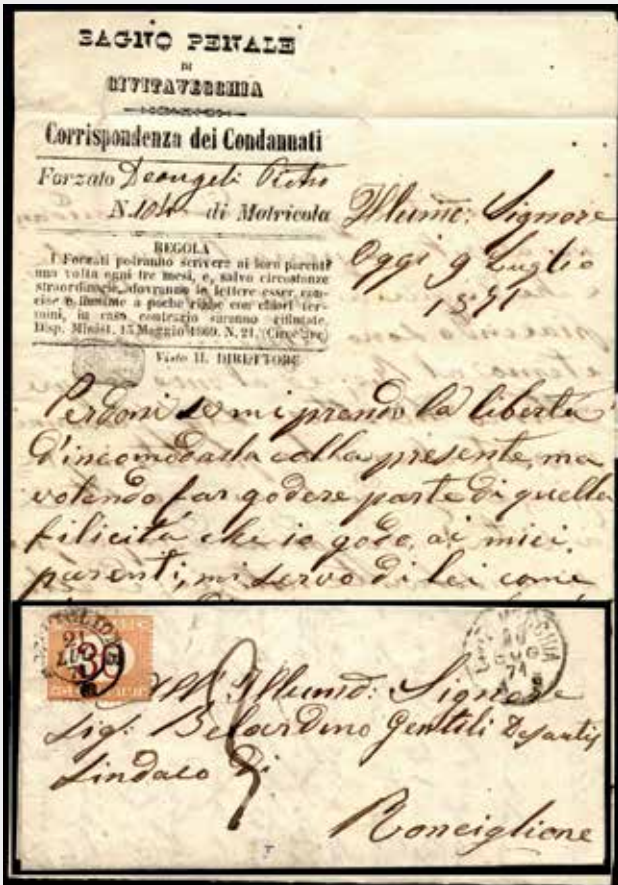 BAGNO PENALE
DI
CIVITAVECCHIA
Corrispondenza dei Condannati
Forzato Deangeli Pietro
N. 104 di Matricola
REGOLA
I Forzati potranno scrivere ai loro parenti
una volta ogni tre mesi, e, salvo circostanze
straordinarie, dovranno le lettere esser con-
cise e limitate a poche righe con chiari ter-
mini, in caso contrario saranno rifiutate.
Disp. Minist. 15 Maggio 1869. N. 21. (Circolare)
Visto IL DIRETTORE
Illumo: Signore
Oggi 9 Luglio
1871
Perdoni se mi prendo la libertà
d'incomodarla colla presente, ma
volendo far godere parte di quella
filicità che io godo, ai miei
parenti, mi servo di lei come
RONCIGLIONE
21
LUG
71
30
CIVITAVECCHIA
20
LUG
71
3
All' Illumo: Signore
Sig: Belardino Gentili Desantis
Sindaco Di
Ronciglione